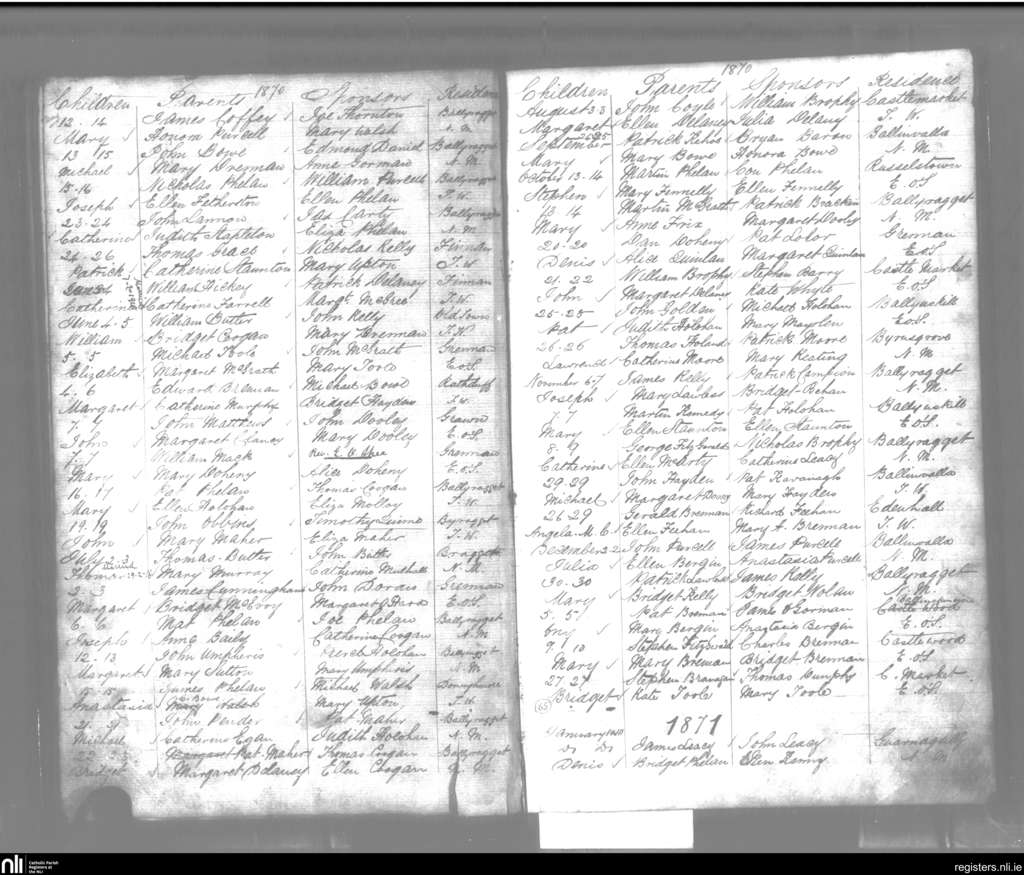 1870
Children Parents Sponsors Residence
12. 14 James Coffey Joe Thornton Ballyragget
Mary Honora Purcell Mary Walsh N. M.
13 15 John Bowe Edmond Daniel Ballyragget
Michael Mary Drennan Anne Gorman N. M.
15. 16 Nicholas Phelan William Purcell Ballyragget
Joseph Ellen Fetherston Ellen Phelan T. W.
23. 24 John Lannon Jas Carty Ballyragget
Catherine Judith Stapleton Eliza Phelan N. M.
24. 26 Thomas Grace Nicholas Kelly Finnan
Patrick Catherine Staunton Mary Upton T. W.
William Hickey Patrick Delaney Finnan
Catherine Catherine Farrell Margt. McCree T. W.
June 4. 5 William Butler John Kelly Oldtown
William Bridget Brogan Mary Brennan T. W.
5. 5 Michael Toole John McGrath Grennan
Elizabeth Margaret McGrath Mary Ford E. OS
4. 6 Edward Brennan Michael Bowe
Margaret Catherine Murphy Bridget Hayden T. W.
7. 7 John Matthews John Dooley
John Margaret Mary Dooley E. OS
7. 7 William Mack Rev. E. O Shea Grennan
Mary Mary Doheny Alice Doheny E. OS
16. 17 Pat Phelan Thomas Brogan Ballyragget
Mary Ellen Holohan Eliza Molloy T. W.
19. 19 John Owens Timothy Byragget
John Mary Maher Eliza Maher T. W.
July Thomas Butler John Butler
Thomas Mary Murray Catherine N. M.
2. 3 James Cunningham John Doran Grennan
Margaret Bridget McEvoy Margaret O Hara E. OS
6. 6 Mat Phelan Joe Phelan Ballyragget
Joseph Anne Baily Catherine Brogan N. M.
12. 13 John Umphris Holohan
Margaret Mary Sutton Mary Umphris N. M.
15 James Phelan Michael Walsh Donoughmore
Anastasia Mary Walsh Mary Upton T. W.
21. 21 John Pender Pat Maher Ballyragget
Michael Catherine Egan Judith Holohan N. M.
22 Pat. Maher Thomas Brogan Ballyragget
Bridget Margaret Delaney Ellen Brogan N. M.
1870
Children Parents Sponsors Residence
August 23 John Coyle William Brophy Castlemarket
Margaret Ellen Delaney Julia Delany T. W.
September 25 25 Patrick Kehoe Bryan Baron Ballinvalla
Mary Mary Bowe Honora Bowe N. M.
October 13. 14 Martin Phelan Con Phelan Russelstown
Stephen Mary Fennelly Ellen Fennelly E. OS
13 14 Martin McGrath Patrick Bracken Ballyragget
Mary Anne Friz Margaret Dooly N. M.
20. 20 Dan Doheny Pat Lalor Grennan
Denis Alice Quinlan Margaret Quinlan E. OS
21. 22 William Brophy Stephen Barry Castle market
John Margaret Delaney Kate Whyte E. OS
25. 25 John Golden Michael Holohan Ballyuskill
Pat Judith Holohan Mary E. OS.
26. 26 Thomas Foland Patrick Moore Byrnsgrove
Lawrence Catherine Moore Mary Keating N. M.
November 6. 7 James Kelly Patrick Campion Ballyragget
Joseph Mary Lawless Bridget Behan N. M.
7. 7 Martin Kennedy Pat Holohan Ballyuskill
Mary Ellen Staunton Ellen Staunton E. OS
8. 9 George Fitzgerald Nicholas Brophy Ballyragget
Catherine Ellen McCarty Catherine Leacy N. M.
29. 29 John Hayden Pat Kavanagh Ballinvalla
Michael Margaret Mary Hayden T. W.
26 29 Gerald Brennan Richard Feehan Edenhall
Angela M. C. Ellen Feehan Mary A. Brennan T. W.
December 2 2 John Purcell James Purcell Ballinvalla
Julia Ellen Bergin Anastasia Purcell N. M.
30. 30 Patrick Lawless James Kelly Ballyragget
Mary Bridget Kelly Bridget Nolan N. M.
5. 5 Pat Brennan James O Gorman Castle Wood
Mary Bergin Anastasia Bergin E. OS
9. 10 Stephen Fitzpatrick Charles Brennan Castlewood
Mary Mary Brennan Bridget Brennan E. OS
27. 27 Stephen Branagan Thomas Dunphy C. Market
Bridget Kate Toole Mary Toole E. OS
65
1871
January 10 11 James Leacy John Leacy
Denis Bridget Phelan Ellen N. M
nli Catholic Parish Registers at the NLI
registers.nli.ie